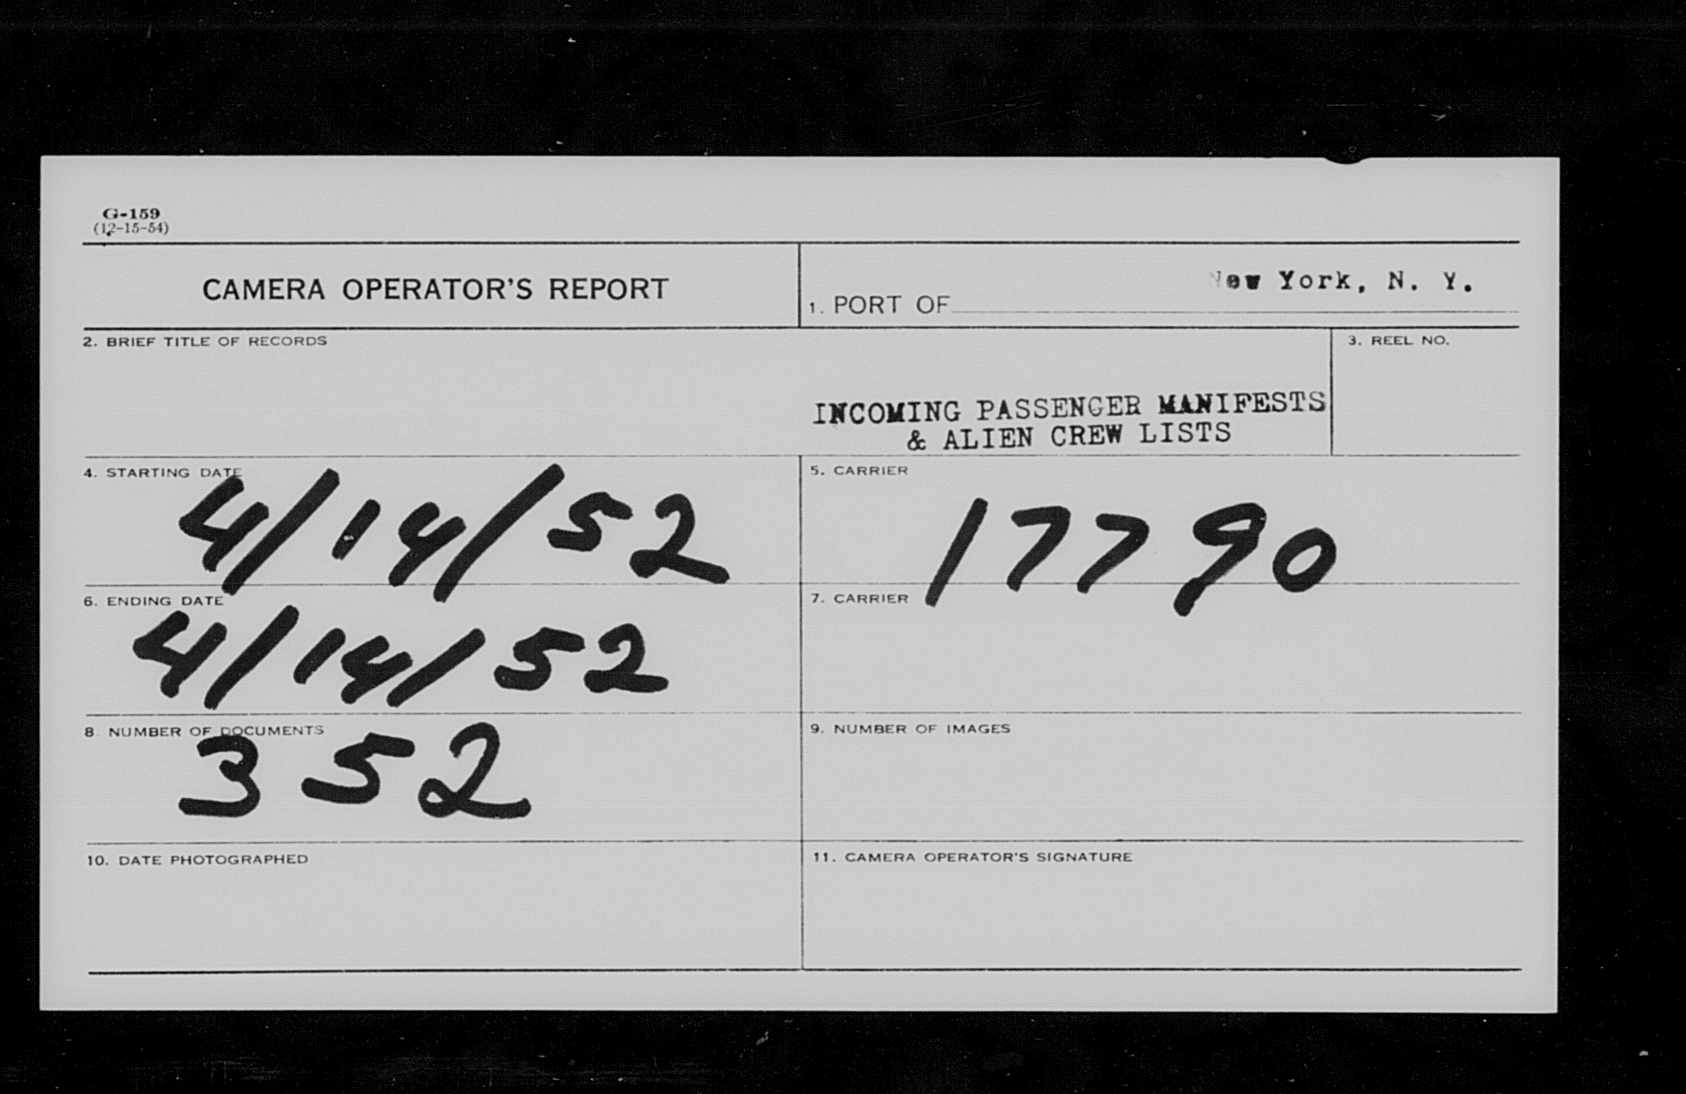 G-159
(12-15-54)
CAMERA OPERATOR'S REPORT
1. PORT OF New York, N. Y.
2. BRIEF TITLE OF RECORDS
INCOMING PASSENGER MANIFESTS
& ALIEN CREW LISTS
3. REEL NO.
4. STARTING DATE
4/14/52
5. CARRIER
17790
6. ENDING DATE
4/14/52
7. CARRIER
8. NUMBER OF DOCUMENTS
352
9. NUMBER OF IMAGES
10. DATE PHOTOGRAPHED
11. CAMERA OPERATOR'S SIGNATURE